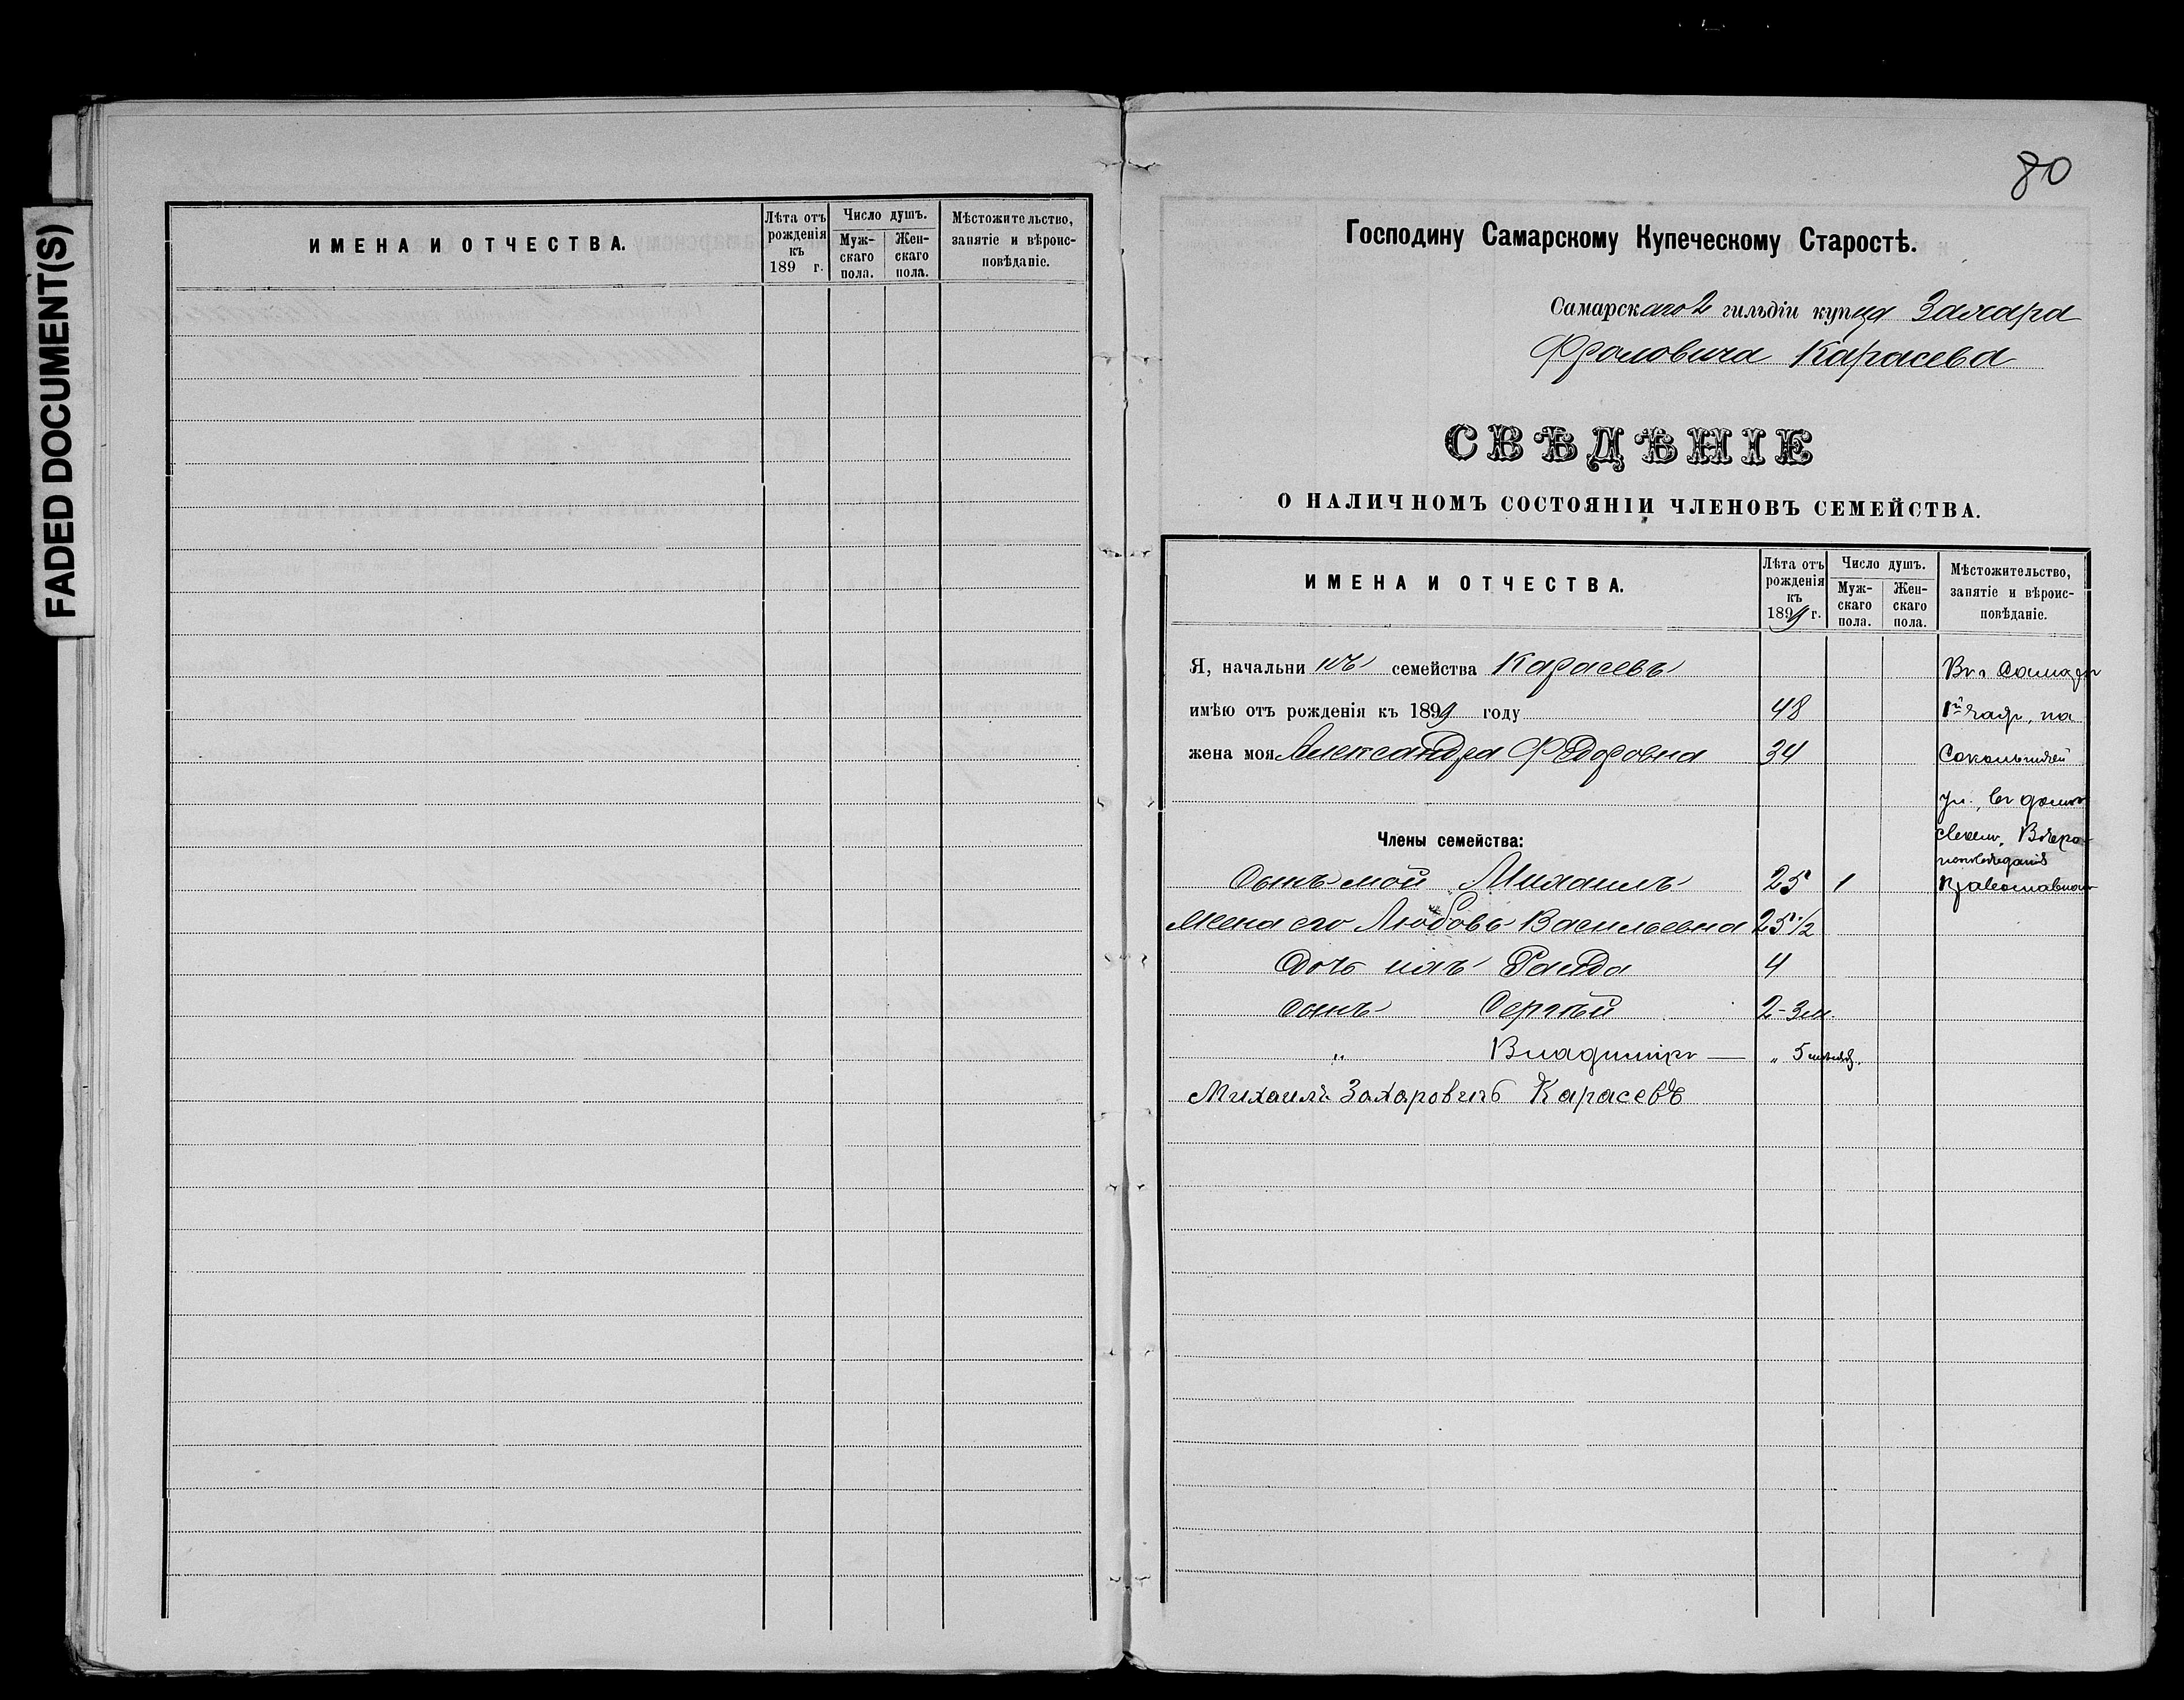 FADED DOCUMENT(S)
ИМЕНА И ОТЧЕСТВА.
Лѣта отъ рожденія къ 189 г.
Число душъ.
Мужскаго пола.
Женскаго пола.
Мѣстожительство, занятіе и вѣроисповѣданіе.
80
Господину Самарскому Купеческому Старостѣ.
Самарскаго 2 гильдіи купца Захара
Фроловича Карасева
СВѢДѢНІЕ
О НАЛИЧНОМЪ СОСТОЯНІИ ЧЛЕНОВЪ СЕМЕЙСТВА.
ИМЕНА И ОТЧЕСТВА.
Лѣта отъ рожденія къ 1899 г.
Число душъ.
Мужскаго пола.
Женскаго пола.
Мѣстожительство, занятіе и вѣроисповѣданіе.
Я, начальникъ семейства Карасевъ Въ Самарѣ
имѣю отъ рожденія къ 1899 году 48 1й части, на
жена моя Александра Федоровна 34 Сокольничей
ул., въ домѣ
Члены семейства: своемъ, Вѣро-
исповѣданія
Сынъ мой Михаилъ 25 1 Православнаго
Жена его Любовь Васильевна 25 1/2
Дочь ихъ Раида 4
сынъ Сергѣй 2-3 м.
„ Владиміръ — „ 5 мѣсяц.
Михаилъ Захаровичъ Карасевъ